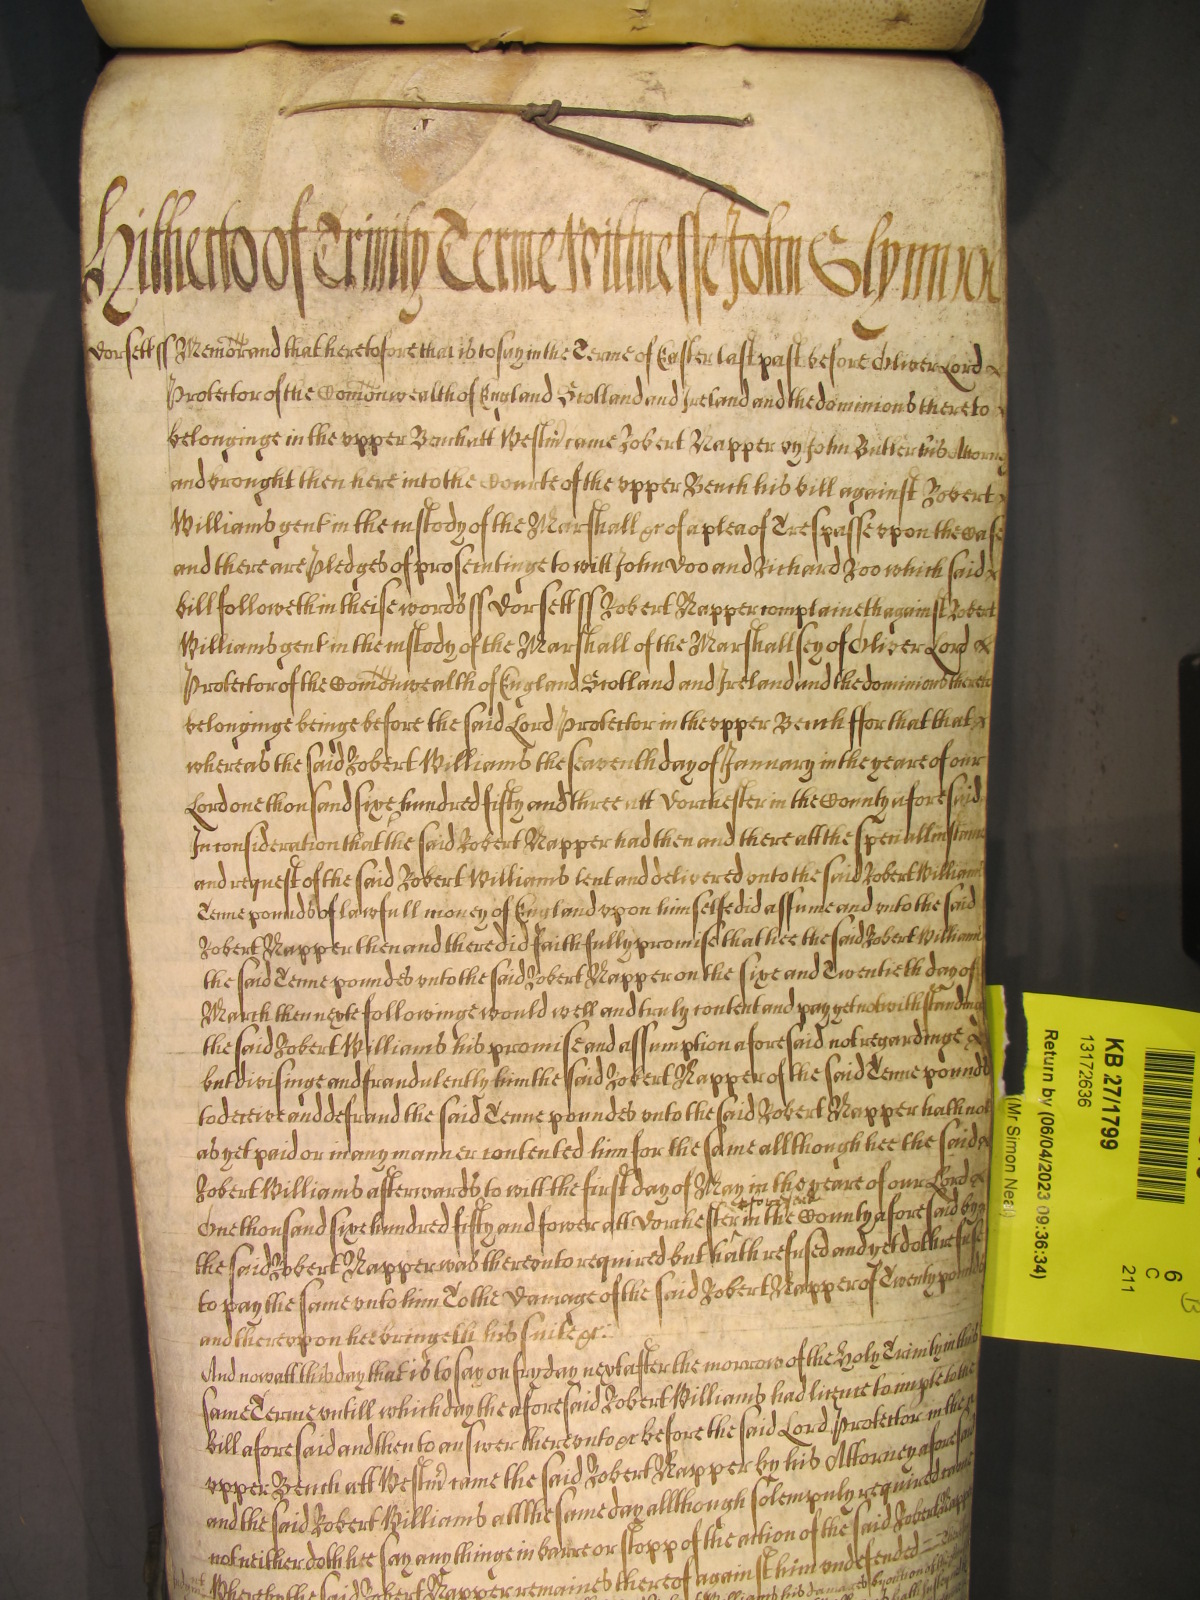 Hitherto of Trinity Terme Wittnesse John Glynn
Dorsett ss Memorand that heretofore that is to say in the Terme of Easter last past before Oliver Lord
Protector of the Comonwealth of England Scotland and Ireland and the dominions thereto
belonginge in the upper Bench att Westmr came Robert Napper by John Butler his Attorney
and brought then here into the Courte of the upper Bench his bill against Robert
Williams gent in the custody of the Marshall &c of a plea of Trespasse upon the Case
and there are Pledges of prosecutinge to witt John Doo and Richard Roo which said
bill followeth in theise words ss Dorsett ss Robert Napper complaineth against Robert
Williams gent in the custody of the Marshall of the Marshallsey of Oliver Lord
Protector of the Comonwealth of England Scotland and Ireland and the dominions thereto
belonginge beinge before the said Lord Protector in the upper Bench ffor that that
whereas the said Robert Williams the seaventh day of January in the yeare of our
Lord one thousand sixe hundred fifty and three att Dorchester in the County aforesaid
In consideration that the said Robert Napper had then and there att the speciall instance
and request of the said Robert Williams lent and delivered unto the said Robert Williams
Tenne pounds of lawfull money of England upon himselfe did assume and unto the said
Robert Napper then and there did faithfully promise that hee the said Robert Williams
the said Tenne poundes unto the said Robert Napper on the sixe and Twentieth day of
March then nexte followinge would well and truly content and pay yet notwithstandinge
the said Robert Williams his promise and assumption aforesaid not regardinge
but divisinge and fraudulently him the said Robert Napper of the said Tenne pounds
to deceive and defraud the said Tenne poundes unto the said Robert Napper hath not
as yet paid or in any manner contented him for the same allthough hee the said
Robert Williams afterwards to witt the first day of May in the yeare of our Lord
One thousand sixe hundred fifty and fower att Dorchester aforesaid in the County aforesaid by
the said Robert Napper was thereunto required but hath refused and yet doth refuse
to pay the same unto him To the Damage of the said Robert Napper of Twenty pounds
and thereupon hee bringeth his suite &c
And now att this day that is to say on fryday next after the morrow of the Holy Trinity in this
same Terme untill which day the aforesaid Robert Williams had licence to imple to the
bill aforesaid and then to answer thereunto &c before the said Lord Protector in the
upper Bench att Westmr came the said Robert Napper by his Attorney aforesaid
and the said Robert Williams att the same day allthough solempnly required came
not neither doth hee say any thinge in barre or stopp of the action of the said Robert Napper
Whereby the said Robert Napper remaines thereof against him undefended
KB 27/1799
13172636
Return by (06/04/2023 09:36:34)
(Mr Simon Neal)
6
C
211